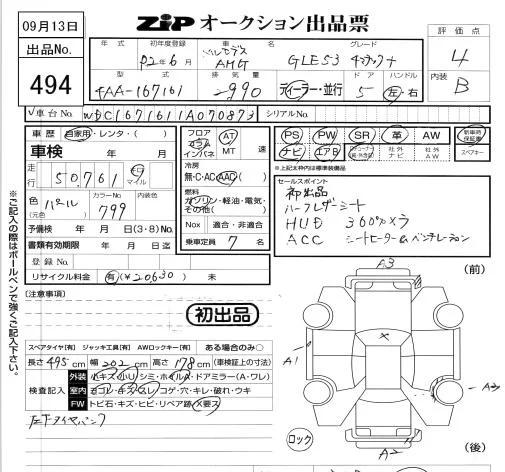 09月13日
ZIP オークション出品票
出品No.
494
評価点
4
内装
B
年式 初年度登録 車名 グレード
R2年6月 メルセデス AMG GLE53 4マチック+
型式 排気量 ドア ハンドル
4AA-167161 2990 ディーラー・並行 5 左・右
車台No. WDC1671611A070873 シリアルNo.
車歴 自家用・レンタ・( )
車検 年 月
走行 50,761 キロ マイル
色(元色) パール カラーNo. 799 内装色
予備検 年 月 日(3・8)No.
書類有効期限 年 月 日迄
登録No.
リサイクル料金 有(¥20,630) 未
フロア コラム インパネ AT MT 速
冷房 無・C・AC・AAC( )
燃料 ガソリン・軽油・電気・その他( )
Nox 適合・非適合
乗車定員 7 名
PS PW SR 革 AW 新車時保証書
ナビ エアB 社外ナビ 社外AW スペアキー
*上記太枠内は標準装備品
セールスポイント
初出品
ハーフレザーシート
HUD 360°カメラ
ACC シートヒーター&ベンチレーション
[注意事項]
初出品
スペアタイヤ[有] ジャッキ工具[有] AWロックキー[有] ある場合のみ○
長さ 495cm 幅 202cm 高さ 178cm (車検証上の寸法)
検査記入
外装 小キズ・小U・シミ・ホイルA・ドアミラー(A・ワレ)
室内 ヨゴレ・キズ・スレ・コゲ・穴・キレ・破れ・ウキ
FW トビ石・キズ・ヒビ・リペア跡・X要ス
左下タイヤパンク
※ご記入の際はボールペンで強くご記入下さい。
A3
(前)
A1
×
A3
ロック
A2
(後)